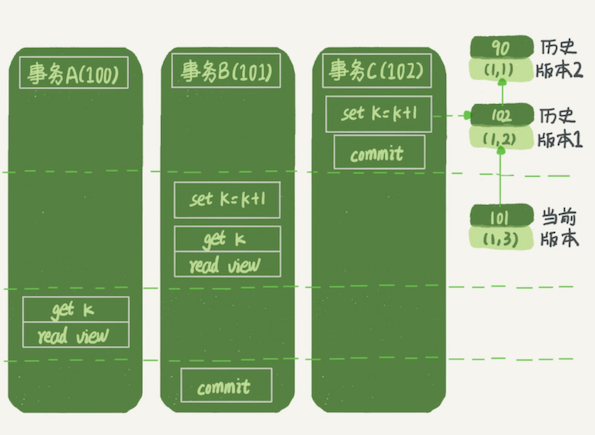 事务A(100)
get k
read view
事务B(101)
set k=k+1
get k
read view
commit
事务C(102)
set k=k+1
commit
90
(1,1)
历史
版本2
102
(1,2)
历史
版本1
101
(1,3)
当前
版本